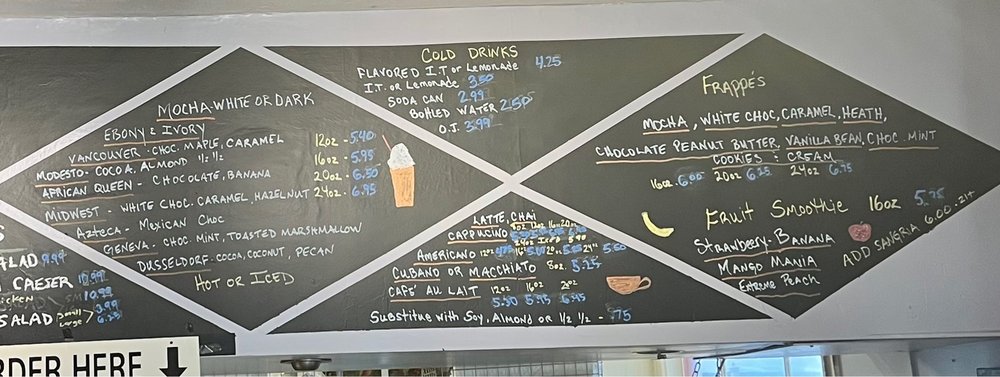 ALAD 9.99
CAESER 10.99
hicken
SM 10.99
SALAD small 3.99
Large 6.25
ORDER HERE
MOCHA-WHITE OR DARK
EBONY & IVORY
VANCOUVER - CHOC. MAPLE, CARAMEL
MODESTO- COCOA, ALMOND 1/2 1/2
AFRICAN QUEEN - CHOCOLATE, BANANA
MIDWEST - WHITE CHOC. CARAMEL, HAZELNUT
AZTECA - MEXICAN CHOC
GENEVA - CHOC. MINT, TOASTED MARSHMALLOW
DUSSELDORF - COCOA, COCONUT, PECAN
HOT OR ICED
12oz - 5.40
16oz - 5.95
20oz - 6.50
24oz - 6.95
COLD DRINKS
FLAVORED I.T. or Lemonade 4.25
I.T. or Lemonade 3.50
SODA CAN 2.99
BOTTLED WATER 2.50
O.J. 3.99
LATTE, CHAI
CAPPUCINO
AMERICANO 12oz 24oz 5.50
CUBANO OR MACCHIATO 8oz. 5.25
CAFE' AU LAIT 12oz 16oz 20oz
5.50 5.95 6.45
Substitue with Soy, Almond or 1/2 1/2 - .75
FRAPPÉS
MOCHA, WHITE CHOC, CARAMEL, HEATH,
CHOCOLATE PEANUT BUTTER, VANILLA BEAN, CHOC. MINT
COOKIES & CREAM
16oz 6.00 20oz 6.25 24oz 6.75
FRUIT SMOOTHIE 16oz 5.75
STRAWBERRY-BANANA
MANGO MANIA
EXTREME PEACH
ADD SANGRIA 6.00 - 21+